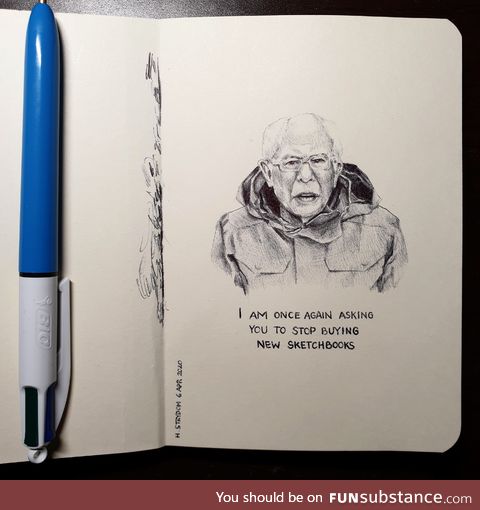 I AM ONCE AGAIN ASKING
YOU TO STOP BUYING
NEW SKETCHBOOKS
H. STRYDOM 6 APR 2020
BIC
You should be on FUNsubstance.com